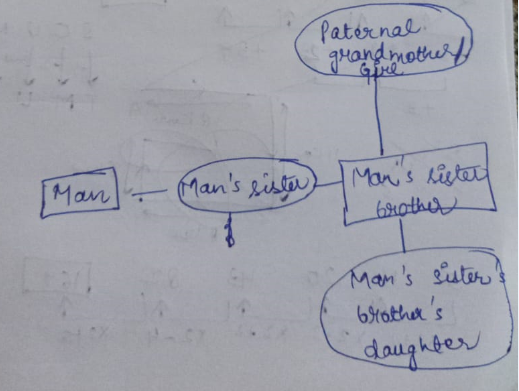 Paternal
grandmother/
Girl
Man
Man's sister
Man's sister
brother
Man's sister's
brother's
daughter